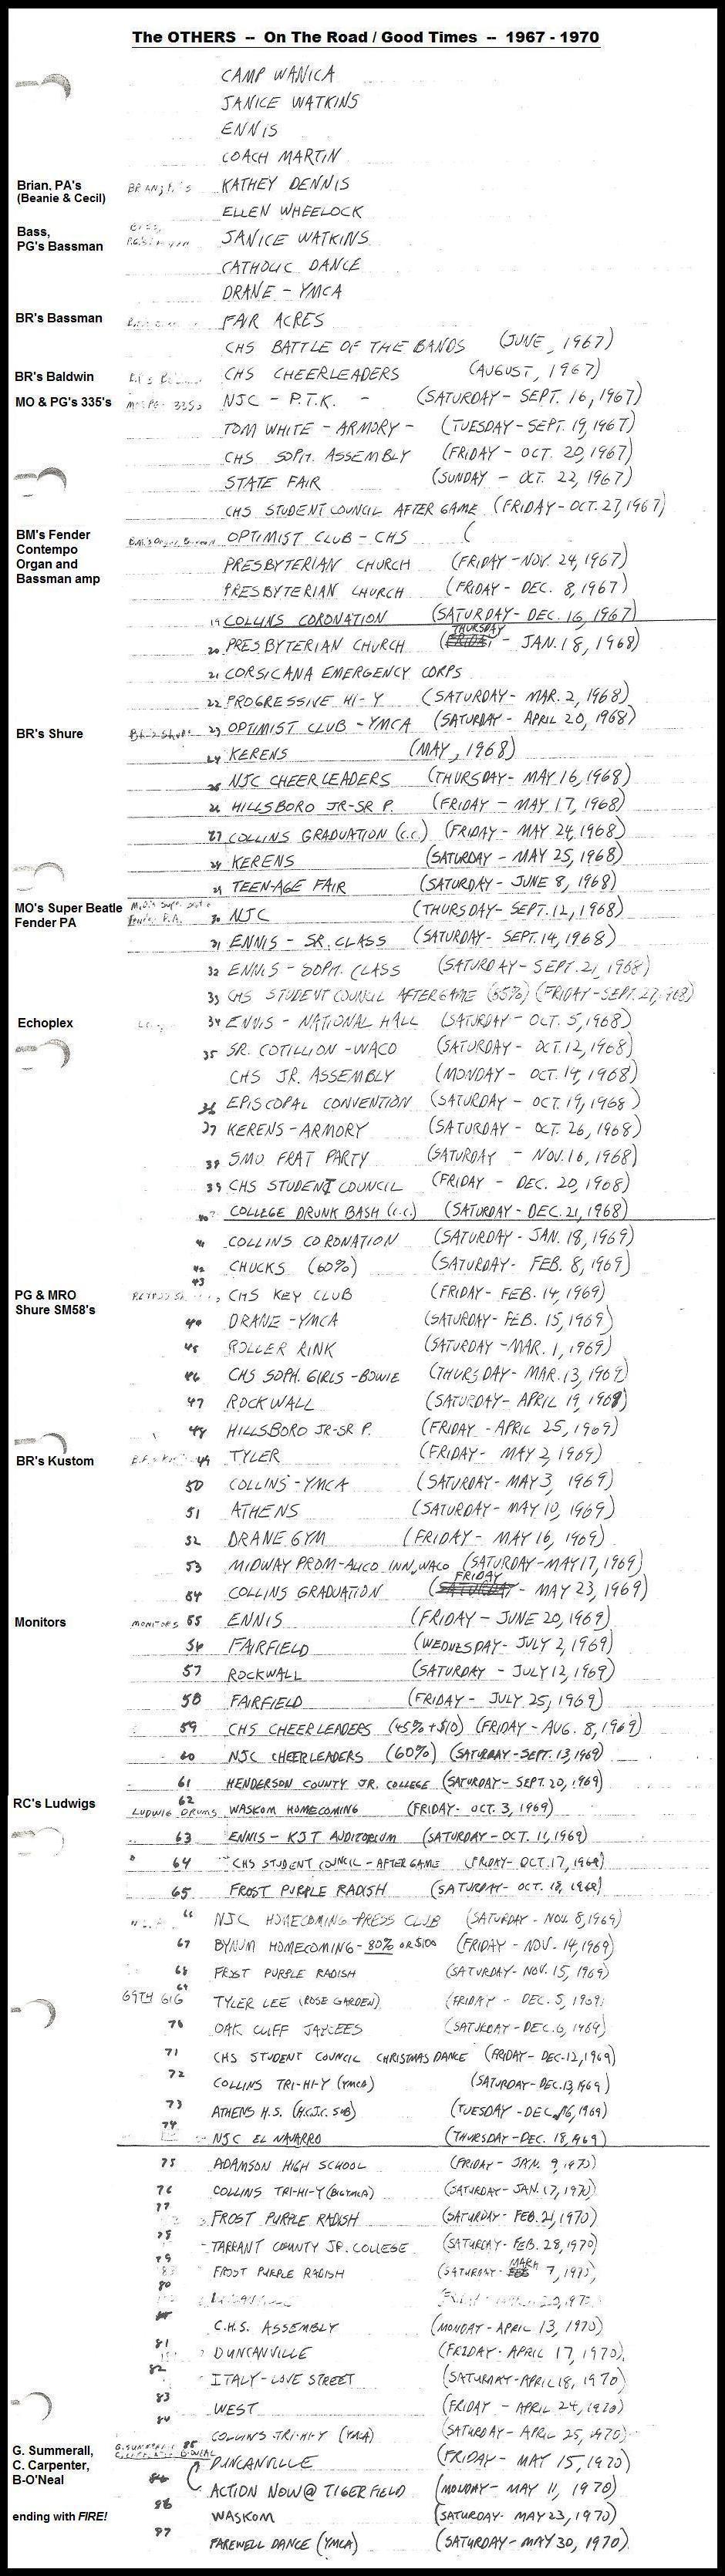 The OTHERS -- On The Road / Good Times -- 1967 - 1970
CAMP WANICA
JANICE WATKINS
ENNIS
COACH MARTIN
Brian, PA's KATHEY DENNIS
(Beanie & Cecil)
ELLEN WHEELOCK
Bass,
PG's Bassman JANICE WATKINS
CATHOLIC DANCE
DRANE - YMCA
BR's Bassman FAIR ACRES
CHS BATTLE OF THE BANDS (JUNE, 1967)
BR's Baldwin CHS CHEERLEADERS (AUGUST, 1967)
MO & PG's 335's NJC - P.T.K. - (SATURDAY - SEPT. 16, 1967)
TOM WHITE - ARMORY - (TUESDAY - SEPT. 19, 1967)
CHS SOPH. ASSEMBLY (FRIDAY - OCT. 20, 1967)
STATE FAIR (SUNDAY - OCT. 22, 1967)
CHS STUDENT COUNCIL AFTER GAME (FRIDAY - OCT. 27, 1967)
BM's Fender
Contempo
Organ and
Bassman amp
OPTIMIST CLUB - CHS (
PRESBYTERIAN CHURCH (FRIDAY - NOV. 24, 1967)
PRESBYTERIAN CHURCH (FRIDAY - DEC. 8, 1967)
19 COLLINS CORONATION (SATURDAY - DEC. 16, 1967)
20 PRESBYTERIAN CHURCH (THURSDAY - JAN. 18, 1968)
21 CORSICANA EMERGENCY CORPS
22 PROGRESSIVE HI-Y (SATURDAY - MAR. 2, 1968)
BR's Shure 23 OPTIMIST CLUB - YMCA (SATURDAY - APRIL 20, 1968)
24 KERENS (MAY, 1968)
25 NJC CHEERLEADERS (THURSDAY - MAY 16, 1968)
26 HILLSBORO JR-SR P. (FRIDAY - MAY 17, 1968)
27 COLLINS GRADUATION (C.C.) (FRIDAY - MAY 24, 1968)
28 KERENS (SATURDAY - MAY 25, 1968)
29 TEEN-AGE FAIR (SATURDAY - JUNE 8, 1968)
MO's Super Beatle
Fender PA 30 NJC (THURSDAY - SEPT. 12, 1968)
31 ENNIS - SR. CLASS (SATURDAY - SEPT. 14, 1968)
32 ENNIS - SOPH. CLASS (SATURDAY - SEPT. 21, 1968)
33 CHS STUDENT COUNCIL AFTERGAME (85%) (FRIDAY - SEPT. 27, 1968)
Echoplex 34 ENNIS - NATIONAL HALL (SATURDAY - OCT. 5, 1968)
35 SR. COTILLION - WACO (SATURDAY - OCT. 12, 1968)
CHS JR. ASSEMBLY (MONDAY - OCT. 14, 1968)
36 EPISCOPAL CONVENTION (SATURDAY - OCT. 19, 1968)
37 KERENS - ARMORY (SATURDAY - OCT. 26, 1968)
38 SMU FRAT PARTY (SATURDAY - NOV. 16, 1968)
39 CHS STUDENT COUNCIL (FRIDAY - DEC. 20, 1968)
40? COLLEGE DRUNK BASH (C.C.) (SATURDAY - DEC. 21, 1968)
41 COLLINS CORONATION (SATURDAY - JAN. 18, 1969)
42 CHUCKS (60%) (SATURDAY - FEB. 8, 1969)
PG & MRO
Shure SM58's
43 CHS KEY CLUB (FRIDAY - FEB. 14, 1969)
44 DRANE - YMCA (SATURDAY - FEB. 15, 1969)
45 ROLLER RINK (SATURDAY - MAR. 1, 1969)
46 CHS SOPH. GIRLS - BOWIE (THURSDAY - MAR. 13, 1969)
47 ROCKWALL (SATURDAY - APRIL 19, 1969)
48 HILLSBORO JR-SR P. (FRIDAY - APRIL 25, 1969)
BR's Kustom 49 TYLER (FRIDAY - MAY 2, 1969)
50 COLLINS - YMCA (SATURDAY - MAY 3, 1969)
51 ATHENS (SATURDAY - MAY 10, 1969)
52 DRANE GYM (FRIDAY - MAY 16, 1969)
53 MIDWAY PROM - ALICO INN, WACO (SATURDAY - MAY 17, 1969)
54 COLLINS GRADUATION (FRIDAY - MAY 23, 1969)
Monitors MONITORS 55 ENNIS (FRIDAY - JUNE 20, 1969)
56 FAIRFIELD (WEDNESDAY - JULY 2, 1969)
57 ROCKWALL (SATURDAY - JULY 12, 1969)
58 FAIRFIELD (FRIDAY - JULY 25, 1969)
59 CHS CHEERLEADERS (45% + $10) (FRIDAY - AUG. 8, 1969)
60 NJC CHEERLEADERS (60%) (SATURDAY - SEPT. 13, 1969)
61 HENDERSON COUNTY JR. COLLEGE (SATURDAY - SEPT. 20, 1969)
RC's Ludwigs 62 LUDWIG DRUMS WASKOM HOMECOMING (FRIDAY - OCT. 3, 1969)
63 ENNIS - KJT AUDITORIUM (SATURDAY - OCT. 11, 1969)
64 CHS STUDENT COUNCIL - AFTER GAME (FRIDAY - OCT. 17, 1969)
65 FROST PURPLE RADISH (SATURDAY - OCT. 18, 1969)
66 NJC HOMECOMING - PRESS CLUB (SATURDAY - NOV. 8, 1969)
67 BYNUM HOMECOMING - 80% OR $100 (FRIDAY - NOV. 14, 1969)
68 FROST PURPLE RADISH (SATURDAY - NOV. 15, 1969)
69 69TH GIG TYLER LEE (ROSE GARDEN) (FRIDAY - DEC. 5, 1969)
70 OAK CLIFF JAYCEES (SATURDAY - DEC. 6, 1969)
71 CHS STUDENT COUNCIL CHRISTMAS DANCE (FRIDAY - DEC. 12, 1969)
72 COLLINS TRI-HI-Y (YMCA) (SATURDAY - DEC. 13, 1969)
73 ATHENS H.S. (H.C.J.C. SUB) (TUESDAY - DEC. 16, 1969)
74 NJC EL NAVARRO (THURSDAY - DEC. 18, 1969)
75 ADAMSON HIGH SCHOOL (FRIDAY - JAN. 9, 1970)
76 COLLINS TRI-HI-Y (BIG YMCA) (SATURDAY - JAN. 17, 1970)
77 FROST PURPLE RADISH (SATURDAY - FEB. 21, 1970)
78 TARRANT COUNTY JR. COLLEGE (SATURDAY - FEB. 28, 1970)
79 FROST PURPLE RADISH (SATURDAY - MARCH 7, 1970)
80
C.H.S. ASSEMBLY (MONDAY - APRIL 13, 1970)
81 DUNCANVILLE (FRIDAY - APRIL 17, 1970)
82 ITALY - LOVE STREET (SATURDAY - APRIL 18, 1970)
83 WEST (FRIDAY - APRIL 24, 1970)
84 COLLINS TRI-HI-Y (YMCA) (SATURDAY - APRIL 25, 1970)
G. Summerall,
C. Carpenter,
B-O'Neal
85 DUNCANVILLE (FRIDAY - MAY 15, 1970)
86 ACTION NOW @ TIGER FIELD (MONDAY - MAY 11, 1970)
ending with FIRE! 86 WASKOM (SATURDAY - MAY 23, 1970)
87 FAREWELL DANCE (YMCA) (SATURDAY - MAY 30, 1970)